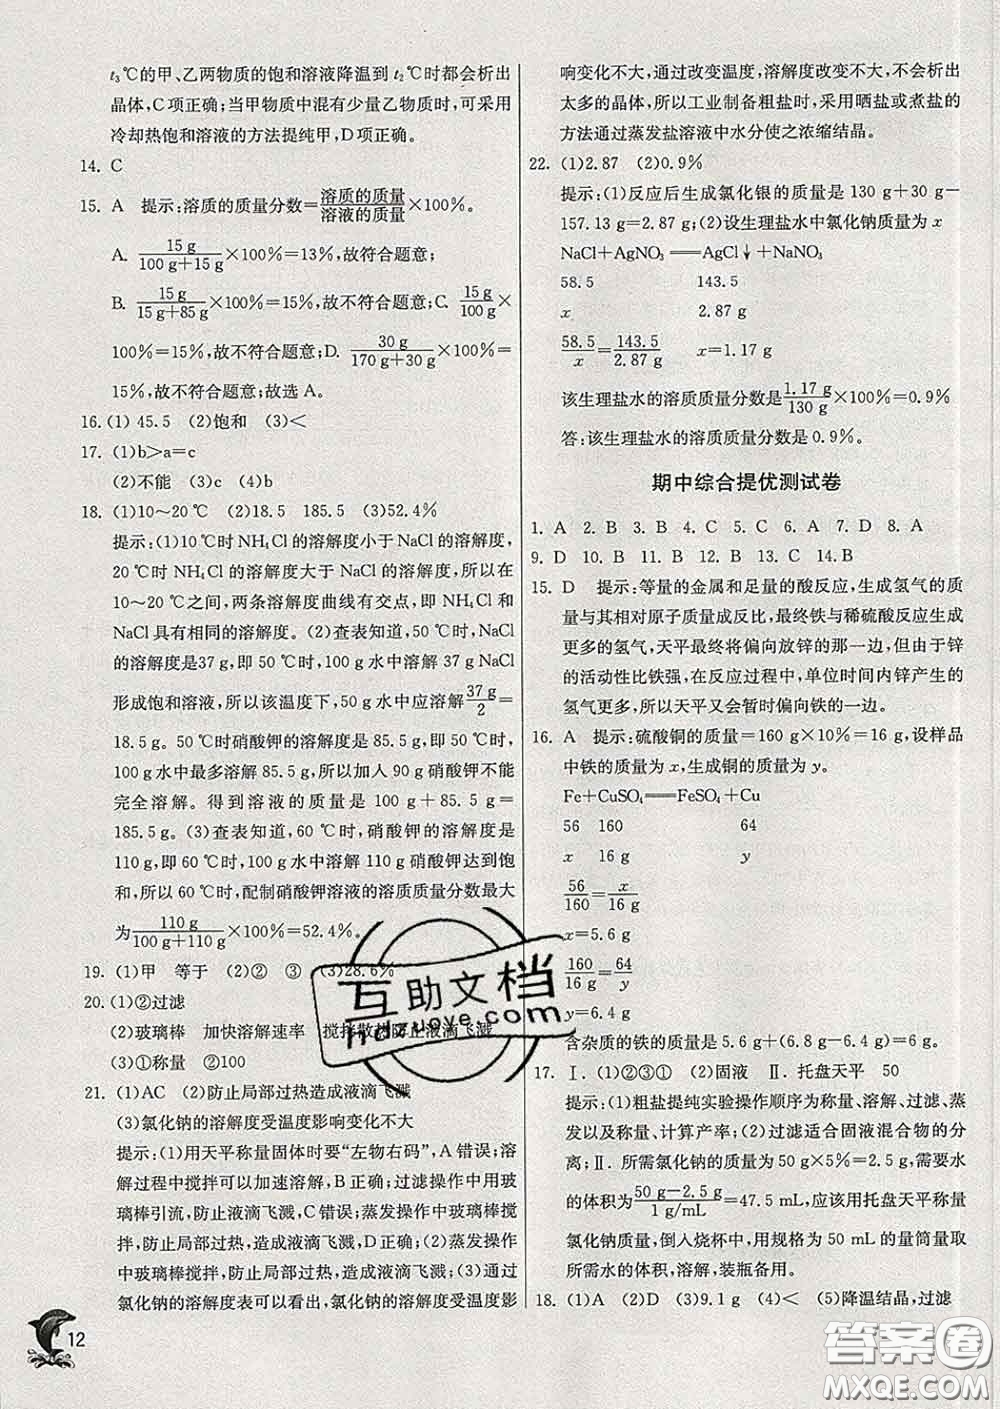 t₃℃的甲、乙两物质的饱和溶液降温到 t₂℃时都会析出
晶体,C项正确;当甲物质中混有少量乙物质时,可采用
冷却热饱和溶液的方法提纯甲,D项正确。
14. C
15. A 提示:溶质的质量分数=溶质的质量/溶液的质量×100%。
A. 15 g/(100 g+15 g)×100%=13%,故符合题意;
B. 15 g/(15 g+85 g)×100%=15%,故不符合题意;C. 15 g/100 g×
100%=15%,故不符合题意;D. 30 g/(170 g+30 g)×100%=
15%,故不符合题意;故选 A。
16.(1) 45.5 (2)饱和 (3)<
17. (1)b>a=c
(2)不能 (3)c (4)b
18. (1)10~20 ℃ (2)18.5 185.5 (3)52.4%
提示:(1)10 ℃时 NH₄Cl 的溶解度小于 NaCl 的溶解度,
20 ℃时 NH₄Cl 的溶解度大于 NaCl 的溶解度,所以在
10~20 ℃之间,两条溶解度曲线有交点,即 NH₄Cl 和
NaCl 具有相同的溶解度。(2)查表知道,50 ℃时,NaCl
的溶解度是37 g,即 50 ℃时,100 g 水中溶解 37 g NaCl
形成饱和溶液,所以该温度下,50 g 水中应溶解37 g/2=
18.5 g。50 ℃时硝酸钾的溶解度是 85.5 g,50 ℃时,100
g 水中最多溶解 85.5 g,所以加人 90 g 硝酸钾不能
完全溶解。得到溶液的质量是 100 g+85.5 g=
185.5 g。(3)查表知道,60 ℃时,硝酸钾的溶解度是
110 g,即 60 ℃时,100 g 水中溶解 110 g 硝酸钾达到饱
和,所以 60 ℃时,配制硝酸钾溶液的溶质质量分数最大
为110 g/(100 g+110 g)×100%=52.4%。
19. (1)甲 等于 (2)② ③ (3)28.6%
20. (1)②过滤
(2)玻璃棒 加快溶解速率 搅拌散热防止液滴飞溅
(3)①称量 ②100
21. (1)AC (2)防止局部过热造成液滴飞溅
(3)氯化钠的溶解度受温度影响变化不大
提示:(1)用天平称量固体时要“左物右码”,A 错误;溶
解过程中搅拌可以加速溶解,B 正确;过滤操作中用玻
璃棒引流,防止液滴飞溅,C错误;蒸发操作中玻璃棒搅
拌,防止局部过热,造成液滴飞溅,D 正确;(2)蒸发操作
中玻璃棒搅拌,防止局部过热,造成液滴飞溅;(3)通过
氯化钠的溶解度表可以看出,氯化钠的溶解度受温度影
12
响变化不大,通过改变温度,溶解度改变不大,不会析出
太多的晶体,所以工业制备粗盐时,采用晒盐或煮盐的
方法通过蒸发盐溶液中水分使之浓缩结晶。
22. (1)2.87 (2)0.9%
提示:(1)反应后生成氯化银的质量是 130 g+30 g-
157.13 g=2.87 g;(2)设生理盐水中氯化钠质量为 x
NaCl+AgNO₃══AgCl↓+NaNO₃
58.5 143.5
x 2.87 g
58.5/x=143.5/2.87 g x=1.17 g
该生理盐水的溶质质量分数是1.17 g/130 g×100%=0.9%
答:该生理盐水的溶质质量分数是 0.9%。
期中综合提优测试卷
1. A 2. B 3. B 4. C 5. C 6. A 7. D 8. A
9. D 10. B 11. B 12. B 13. C 14. B
15. D 提示:等量的金属和足量的酸反应,生成氢气的质
量与其相对原子质量成反比,最终铁与稀硫酸反应生成
更多的氢气,天平最终将偏向放锌的那一边。但由于锌
的活动性比铁强,在反应过程中,单位时间内锌产生的
氢气更多,所以天平又会暂时偏向铁的一边。
16. A 提示:硫酸铜的质量=160 g×10%=16 g,设样品
中铁的质量为 x,生成铜的质量为 y。
Fe+CuSO₄══FeSO₄+Cu
56 160 64
x 16 g y
56/160=x/16 g
x=5.6 g
160/16 g=64/y
y=6.4 g
含杂质的铁的质量是 5.6 g+(6.8 g-6.4 g)=6 g。
17. Ⅰ. (1)①②③① (2)固液 Ⅱ. 托盘天平 50
提示:(1)粗盐提纯实验操作顺序为称量、溶解、过滤、蒸
发以及称量、计算产率;(2)过滤适合固液混合物的分
离;Ⅱ. 所需氯化钠的质量为 50 g×5%=2.5 g,需要水
的体积为(50 g-2.5 g)/(1 g/mL)=47.5 mL,应该用托盘天平称量
氯化钠质量,倒入烧杯中,用规格为 50 mL 的量筒量取
所需水的体积,溶解,装瓶备用。
18. (1)A (2)D (3)9.1 g (4)< (5)降温结晶,过滤
互助文档
hdzuoye.com
答案圈
MXQE.COM